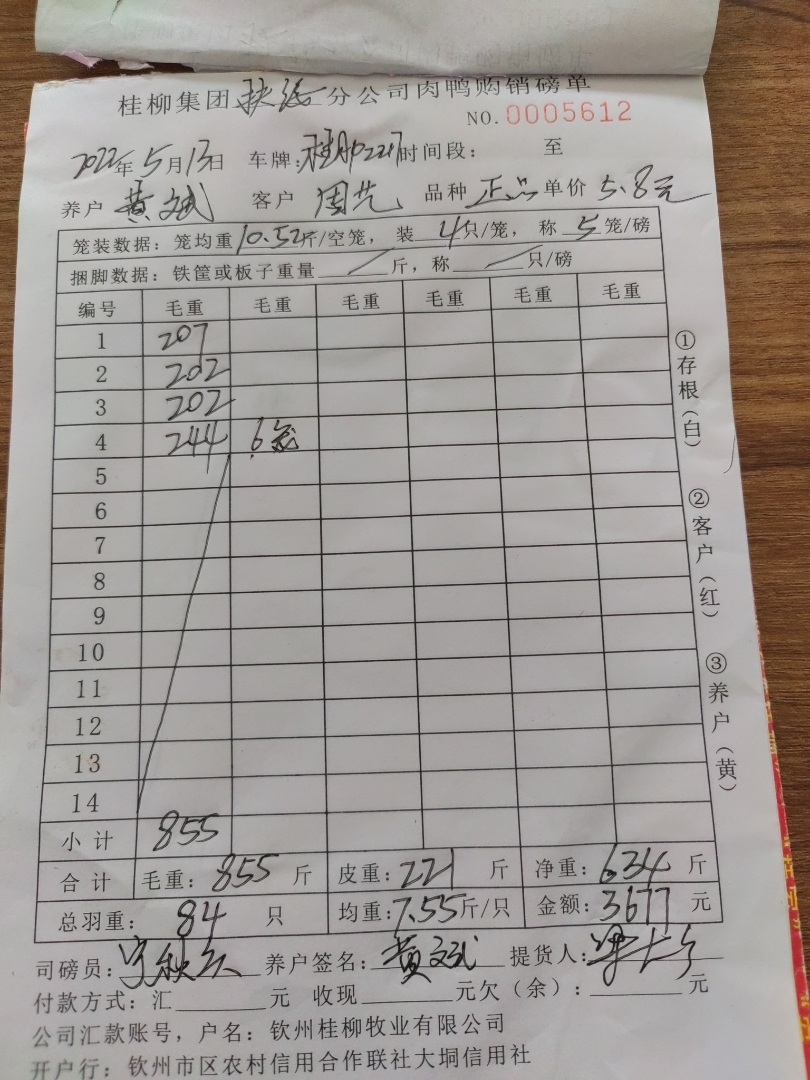 桂柳集团扶绥分公司肉鸭购销磅单
NO.0005612
2022年5月13日 车牌: 时间段: 至
养户 黄文斌 客户 周 品种 正品 单价 5.8元
笼装数据: 笼均重10.52斤/空笼, 装4只/笼, 称5笼/磅
捆脚数据: 铁筐或板子重量 / 斤, 称 / 只/磅
编号 毛重 毛重 毛重 毛重 毛重 毛重
1 207
2 202
3 202
4 244 6笼
5
6
7
8
9
10
11
12
13
14
小计 855
合计 毛重: 855 斤 皮重: 221 斤 净重: 634 斤
总羽重: 84 只 均重: 7.55斤/只 金额: 3677 元
司磅员: 养户签名: 黄文斌 提货人:
付款方式: 汇 元 收现 元欠(余): 元
公司汇款账号, 户名: 钦州桂柳牧业有限公司
开户行: 钦州市区农村信用合作联社大垌信用社
①存根(白)
②客户(红)
③养户(黄)